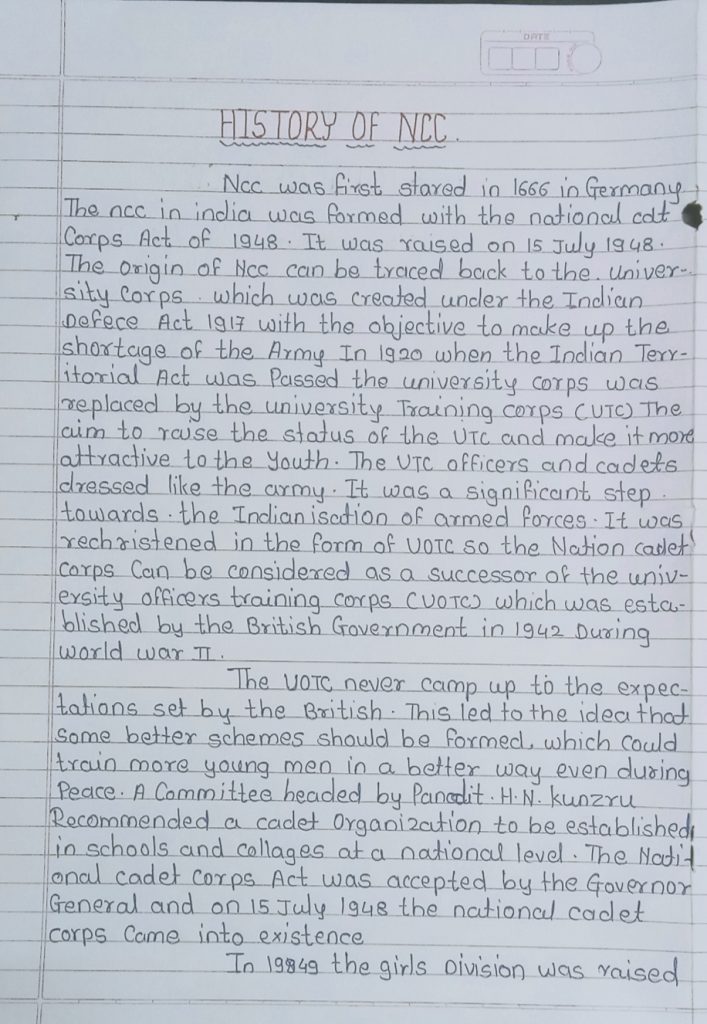 DATE
HISTORY OF NCC.
Ncc was first stared in 1666 in Germany
The ncc in india was formed with the national cdt
Corps Act of 1948. It was raised on 15 July 1948.
The origin of Ncc can be traced back to the. univer-
sity Corps. which was created under the Indian
Defece Act 1917 with the objective to make up the
shortage of the Army In 1920 when the Indian Terr-
itorial Act was Passed the university corps was
replaced by the university Training corps (UTC) The
aim to raise the status of the UTC and make it more
attractive to the Youth. The UTC officers and cadets
dressed like the army. It was a significant step.
towards. the Indianisation of armed forces. It was
rechristened in the form of UOTC so the Nation cadet
corps Can be considered as a successor of the univ-
ersity officers training corps (UOTC) which was esta-
blished by the British Government in 1942 During
world war II.
The UOTC never camp up to the expec-
tations set by the British. This led to the idea that
some better schemes should be formed, which could
train more young men in a better way even during
Peace. A Committee headed by Pandit. H.N. kunzru
Recommended a cadet Organization to be established
in schools and collages at a national level. The Nati
onal cadet corps Act was accepted by the Governor
General and on 15 July 1948 the national cadet
corps Came into existence
In 1949 the girls Division was raised